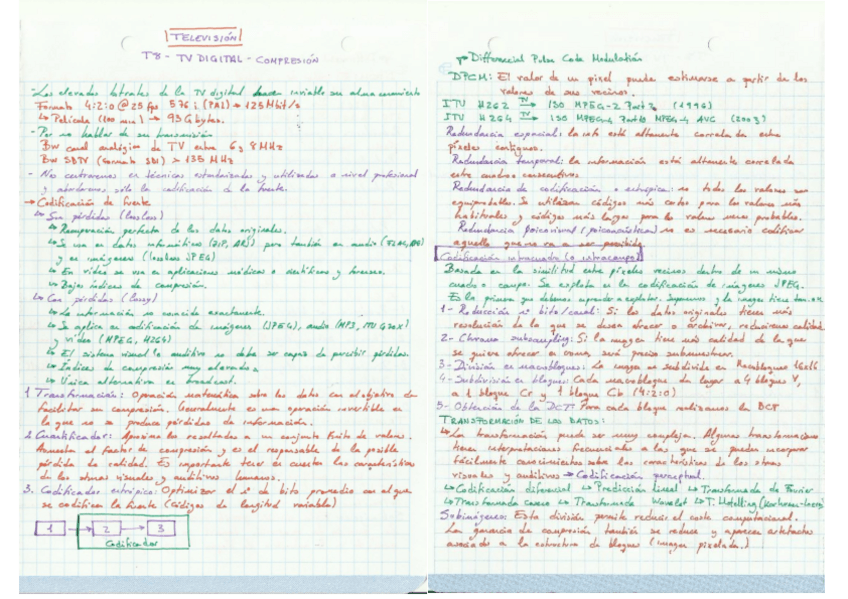 TELEVISIÓN
T8 - TV DIGITAL - COMPRESIÓN
- Los elevados bitrates de la TV digital hacen inviable su almacenamiento
Formato 4:2:0 @ 25 fps 576 i (PAL) → 125 Mbit/s
↳ Película (100 min) → 93 Gbytes.
- Por no hablar de su transmisión
BW canal analógico de TV entre 6 y 8 MHz
BW SDTV (formato SDI) > 135 MHz
- Nos centraremos en técnicas estandarizadas y utilizadas a nivel profesional
y abordaremos sólo la codificación de la fuente.
→ Codificación de fuente
↳ Sin pérdidas (lossless)
↳ Recuperación perfecta de los datos originales.
↳ Se usa en datos informáticos (ZIP, ARJ) pero también en audio
y en imágenes (lossless JPEG)
↳ En vídeo se usa en aplicaciones médicas o científicas y forenses.
↳ Bajos índices de compresión.
↳ Con pérdidas (lossy)
↳ La información no coincide exactamente.
↳ Se aplica en codificación de imágenes (JPEG), audio (MP3, ITU G.7xx)
y vídeo (MPEG, H264)
↳ El sistema visual o auditivo no debe ser capaz de percibir pérdidas.
↳ Índices de compresión muy elevados
↳ Única alternativa en broadcast.
1 Transformación: Operación matemática sobre los datos con el objetivo de
facilitar su compresión. Generalmente es una operación invertible en
la que no se produce pérdidas de información.
2 Cuantificador: Aproxima los resultados a un conjunto finito de valores.
Aumenta el factor de compresión y es el responsable de la posible
pérdida de calidad. Es importante tener en cuenta las características
de los sistemas visuales y auditivos humanos.
3. Codificador entrópico: Optimizar el nº de bits promedio con el que
se codifica la fuente (códigos de longitud variable)
1 → 2 → 3
Codificador
Differencial Pulse Code Modulation
DPCM: El valor de un pixel puede estimarse a partir de los
valores de sus vecinos.
ITU H262 TV→ ISO MPEG-2 Part 2 (1996)
ITU H264 TV→ ISO MPEG-4 Part10 MPEG-4 AVC (2003)
Redundancia espacial: la info está altamente correlada entre
píxeles contiguos.
Redundancia temporal: la información está altamente correlada
entre cuadros consecutivos
Redundancia de codificación o entrópica: no todos los valores son
equiprobables. Se utilizan códigos más cortos para los valores más
habituales y códigos más largos para los valores menos probables.
Redundancia psicovisual (psicoacústica) no es necesario codificar
aquello que no va a ser percibido
Codificación intracuadro (o intracampo)
Basada en la similitud entre píxeles vecinos dentro de un mismo
cuadro o campo. Se explota en la codificación de imágenes JPEG.
Es la primera que debemos aprender a explotar. Suponemos y la imagen
1 - Reducción nº bits/canal: Si los datos originales tienen más
resolución de la que se desea ofrecer o archivar, reduciremos calidad
2 - Chroma subsampling: Si la imagen tiene más calidad de la que
se quiere ofrecer en croma, será preciso submuestrear.
3 - División en macrobloques: La imagen se subdivide en Macrobloques 16x16
4 - Subdivisión en bloques: Cada macrobloque da lugar a 4 bloques Y,
a 1 bloque Cr y 1 bloque Cb (4:2:0)
5 - Obtención de la DCT: Para cada bloque realizamos la DCT
TRANSFORMACIÓN DE LOS DATOS:
↳ La transformación puede ser muy compleja. Algunas transformaciones
tienen interpretaciones frecuenciales a las que se pueden incorporar
fácilmente conocimientos sobre las características de los sistemas
visuales y auditivos → Codificación perceptual
↳ Codificación diferencial ↳ Predicción lineal ↳ Transformada de Fourier
↳ Transformada coseno ↳ Transformada Wavelet ↳ T. Hotelling (Karhunen-Loeve)
Subimágenes: Esta división permite reducir el coste computacional.
La ganancia de compresión también se reduce y aparecen artefactos
asociados a la estructura de bloques (imagen pixelada.)